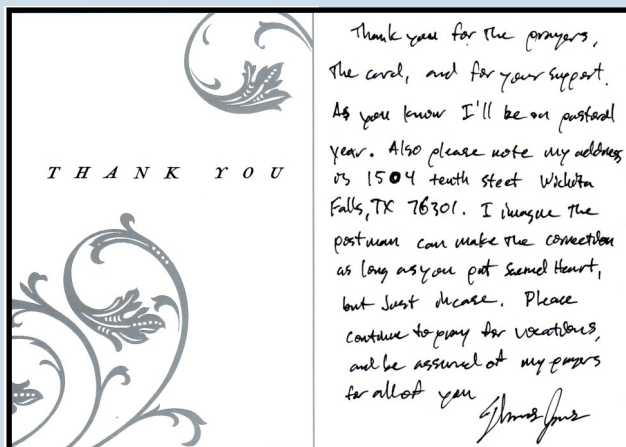 THANK YOU
Thank you for the prayers,
the card, and for your support.
As you know I'll be on pastoral
year. Also please note my address
is 1504 tenth steet Wichita
Falls, TX 76301. I imagine the
postman can make the correction
as long as you put Sacred Heart,
but just incase. Please
continue to pray for vocations,
and be assured of my prayers
for all of you